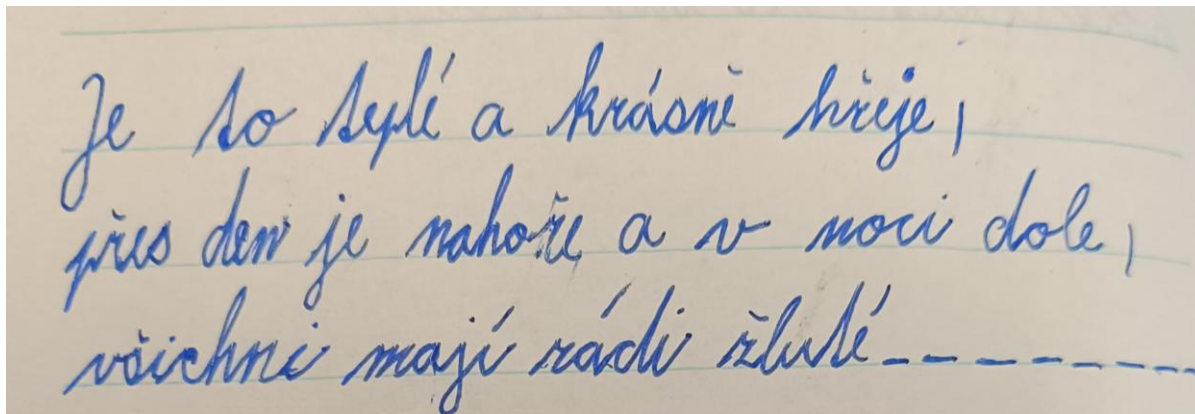 Je to teplé a krásně hřeje,
přes den je nahoře a v noci dole,
všichni mají rádi žluté_ _ _ _ _ _ _ _